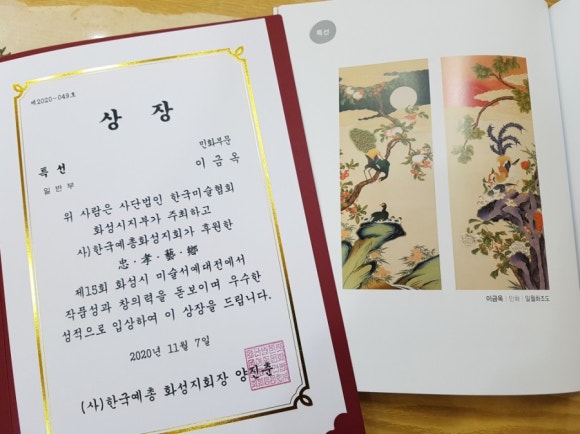 제2020-049호
상 장
민화부문
특 선
이 금 옥
일 반 부
위 사람은 사단법인 한국미술협회
화성시지부가 주최하고
사)한국예총화성지회가 후원한
忠·孝·藝·鄕
제15회 화성시 미술서예대전에서
작품성과 창의력을 돋보이며 우수한
성적으로 입상하여 이 상장을 드립니다.
2020년 11월 7일
(사)한국예총 화성지회장 양진춘
특선
이금옥 / 민화 / 일월화조도